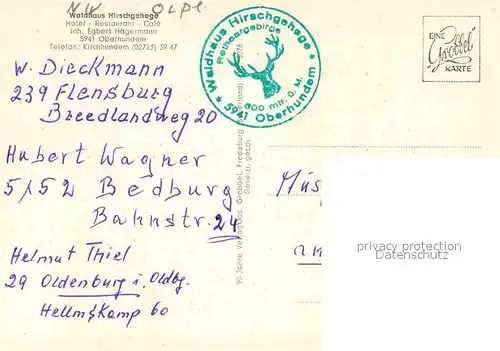 NW Olpe
Waldhaus Hirschgehege
Hotel - Restaurant - Café
Inh. Egbert Hägermann
5941 Oberhundem
Telefon: Kirchhundem (02723) 39 47
W. Dieckmann
239 Flensburg
Breedlandweg 20
Hubert Wagner
5152 Bedburg
Bahnstr. 24
Helmut Thiel
29 Oldenburg i. Oldbg.
Kamp 60
* Waldhaus Hirschgehege *
Rothaargebirge
600 mtr. ü. M.
5941 Oberhundem
90 Jahre Verlag Jos. Grobbel, Fredeburg
Gesetzl. gesch.
EINE
Grobbel
KARTE
privacy protection